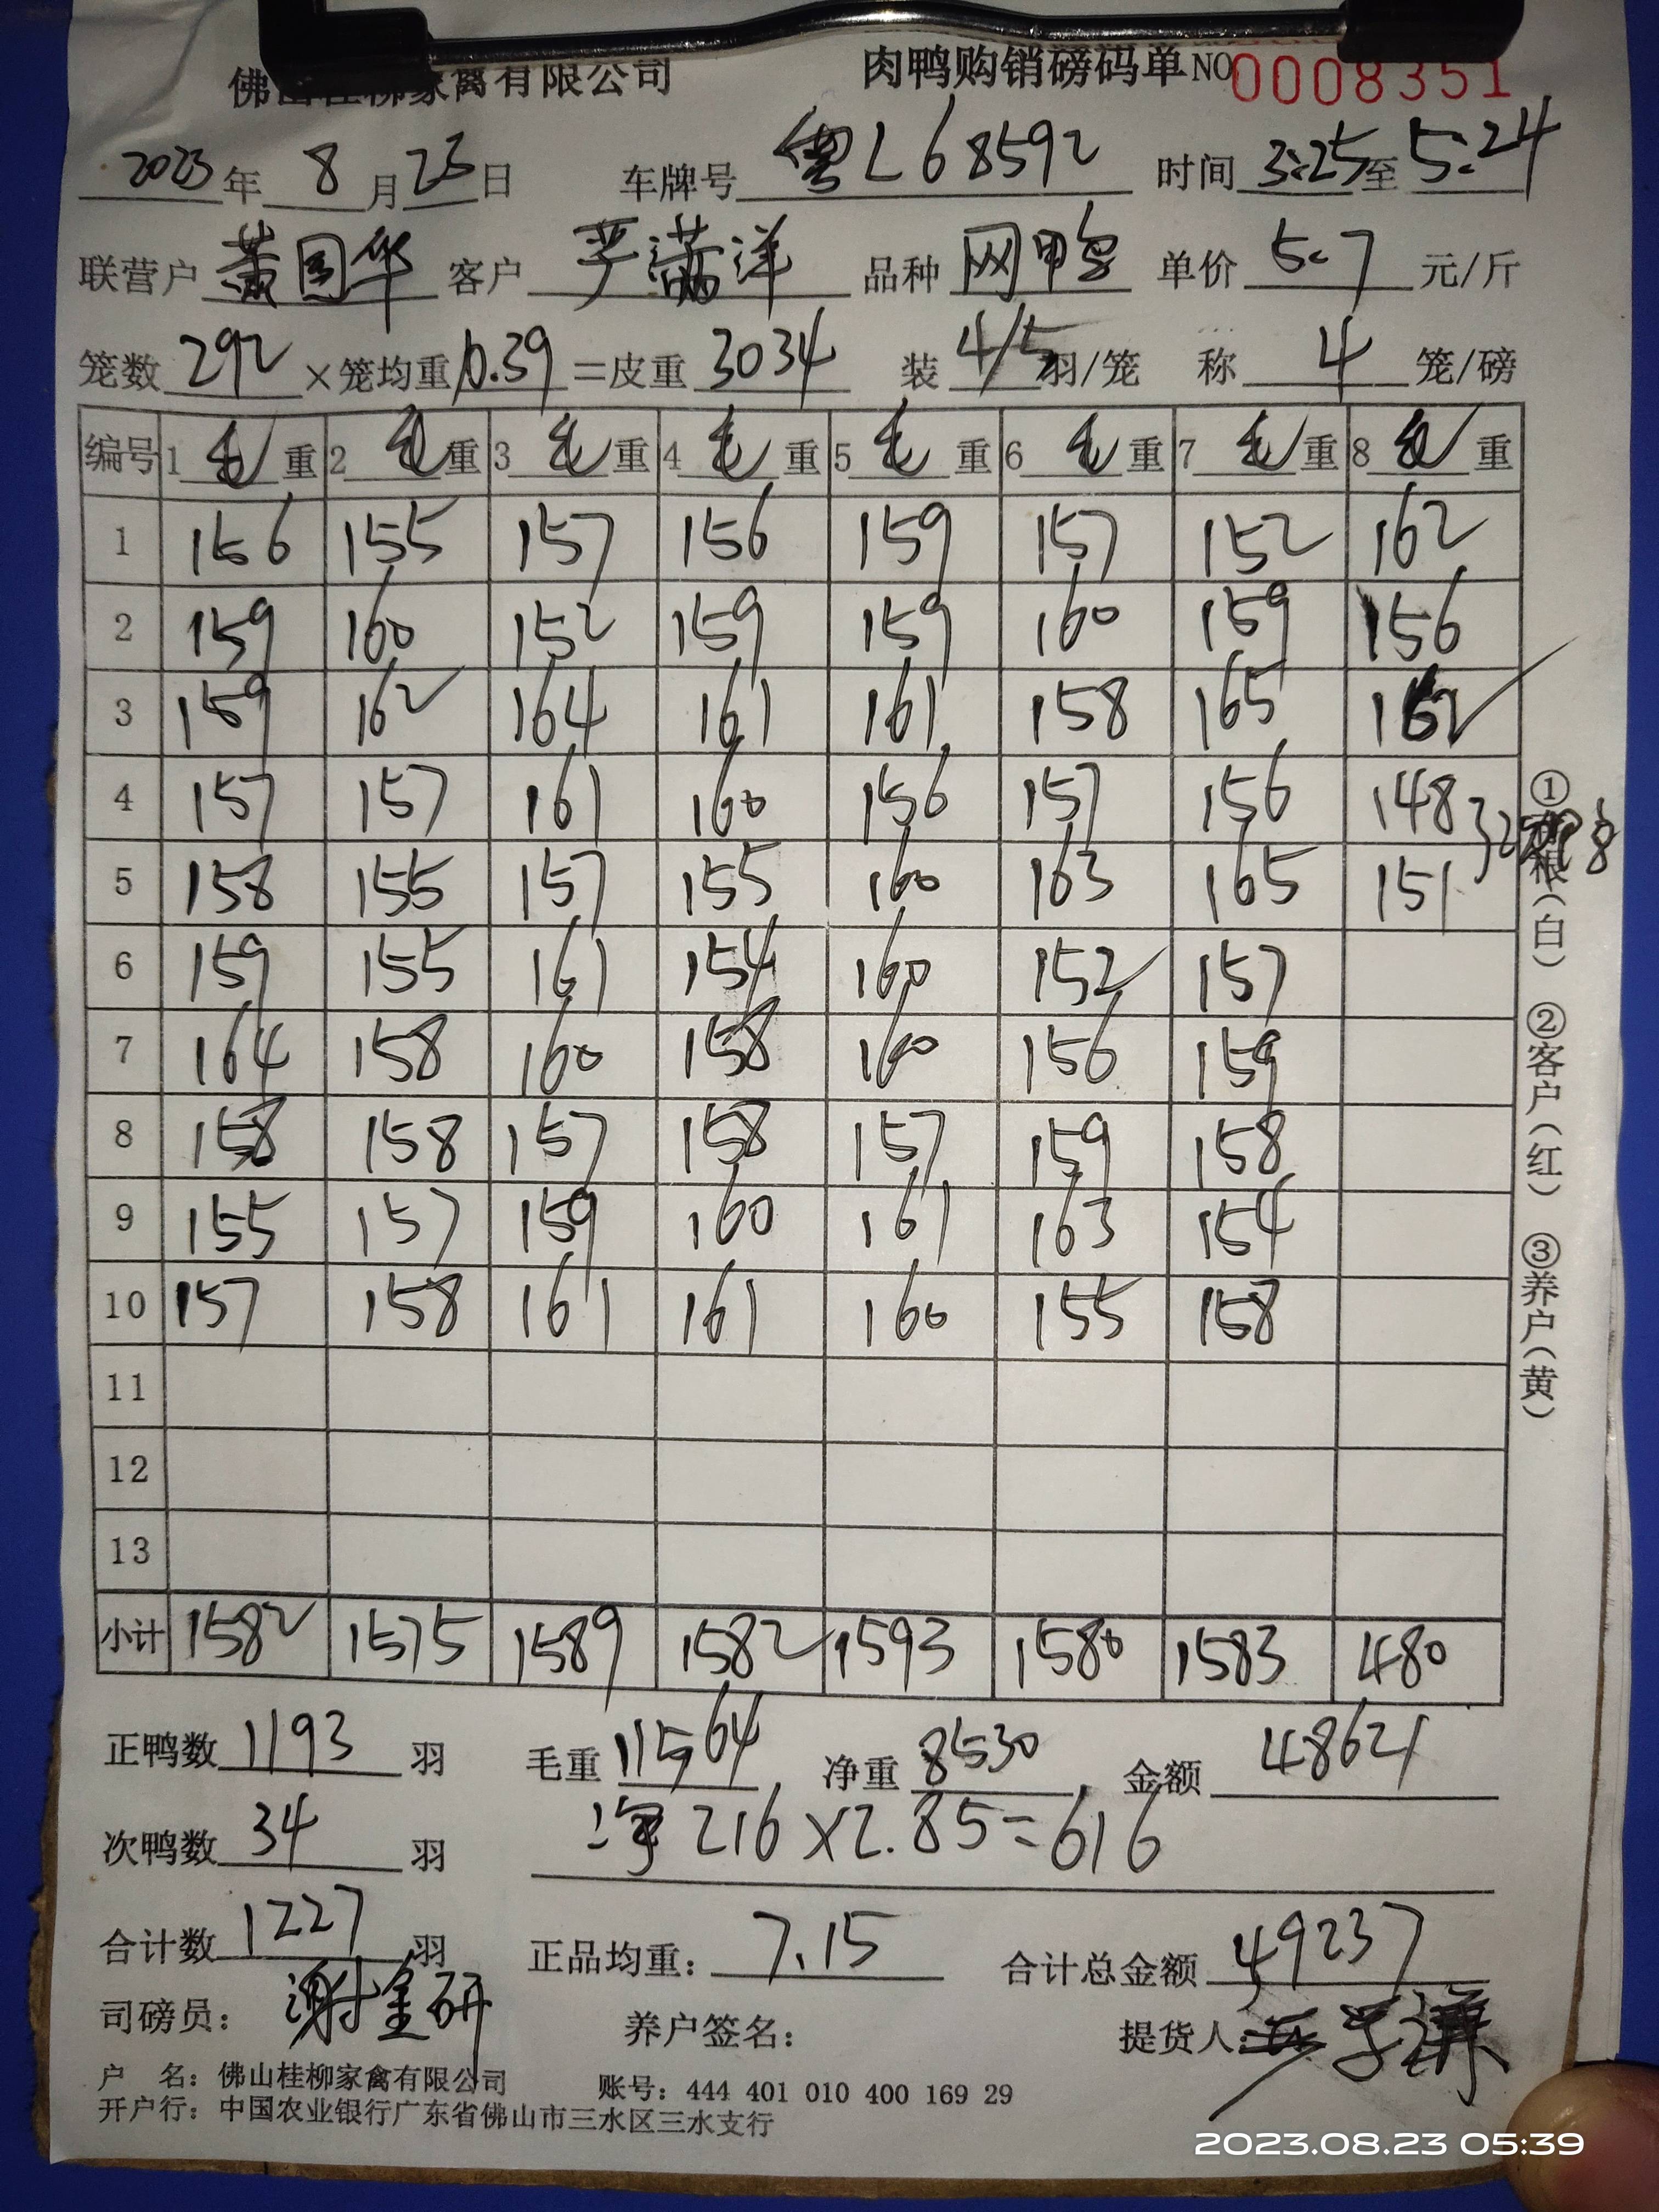 佛山桂柳家禽有限公司 肉鸭购销磅码单 NO 0008351
2023年 8月23日 车牌号 粤L68592 时间 3:25至5:24
联营户 萧国华 客户 严满洋 品种 网鸭 单价 5.7 元/斤
笼数 292 ×笼均重 10.39 =皮重 3034 装 4/5 羽/笼 称 4 笼/磅
编号 1毛重 2毛重 3毛重 4毛重 5毛重 6毛重 7毛重 8毛重
1 156 155 157 156 159 157 152 162
2 159 160 152 159 159 160 159 156
3 159 162 164 161 161 158 165 162
4 157 157 161 160 156 157 156 148
5 158 155 157 155 160 163 165 151
6 159 155 161 154 160 152 157
7 164 158 160 158 160 156 159
8 158 158 157 158 157 159 158
9 155 157 159 160 161 163 154
10 157 158 161 161 160 155 158
11
12
13
小计 1582 1575 1589 1582 1593 1580 1583 480
①根(白) ②客户(红) ③养户(黄)
正鸭数 1193 羽 毛重 11564 净重 8530 金额 48621
次鸭数 34 羽 净 216×2.85=616
合计数 1227 羽 正品均重: 7.15 合计总金额 49237
司磅员: 谢金研 养户签名: 提货人:
户 名: 佛山桂柳家禽有限公司 账号: 444 401 010 400 169 29
开户行: 中国农业银行广东省佛山市三水区三水支行
2023.08.23 05:39